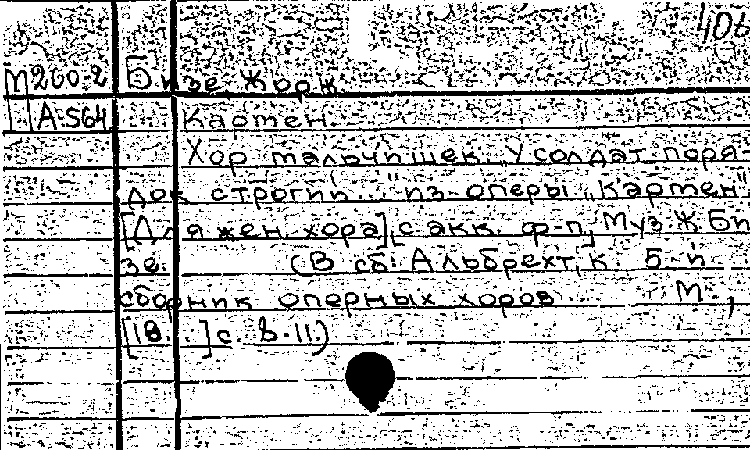 406
М260.2 Бизе Жорж
А-564 Кармен.
Хор мальчишек „У солдат поря-
док строгий..." из оперы „Кармен"
[Для жен. хора] с акк. ф-п, Муз. Ж. Би
зе. (В сб: Альбрехт, К. 5-й
сборник оперных хоров М.,
[18..] с. 8-11.)